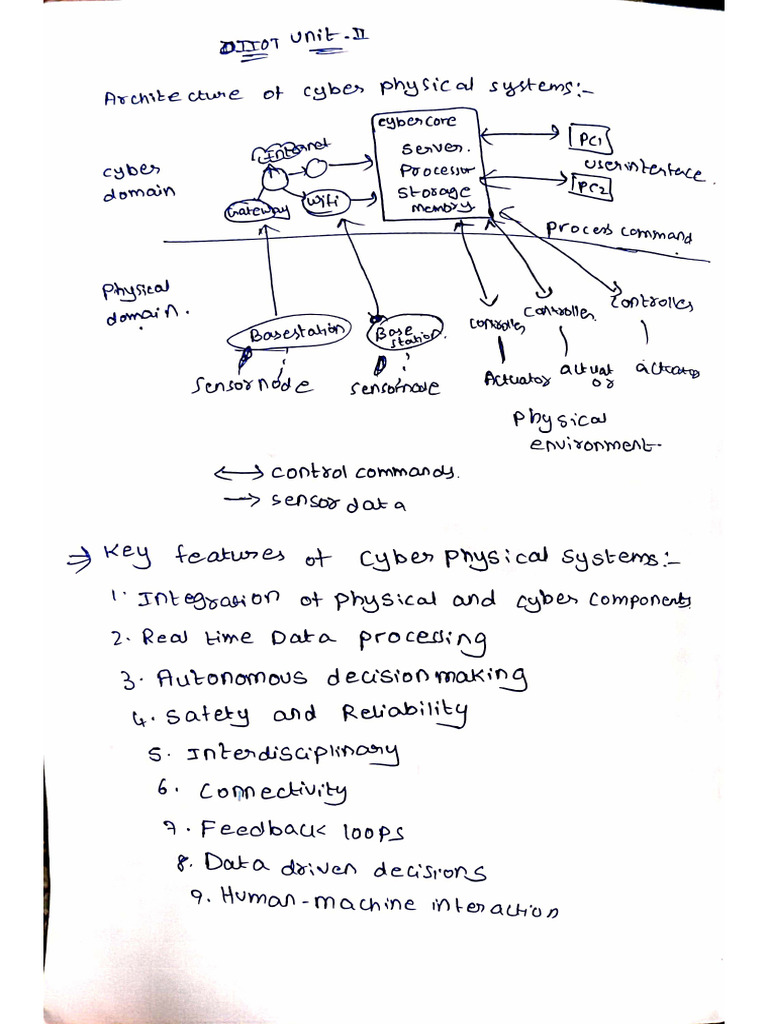 IIOT Unit-II
Architecture of cyber physical systems:-
cyber domain
Internet
Gateway
Wifi
cybercore
Server.
Processor
Storage
memory
PC1
PC2
userinterface.
Process command
Physical domain.
Basestation
Base station.
Sensornode
sensornode
controller
controller.
controller
Actuator
actuat
or
actuator
Physical
environment.
↔ control commands.
→ sensor data
⇒ Key features of cyber physical systems:-
1. Integration of physical and cyber components
2. Real time Data processing
3. Autonomous decision making
4. safety and Reliability
5. Interdisciplinary
6. Connectivity
7. Feedback loops
8. Data driven decisions
9. Human-machine interaction